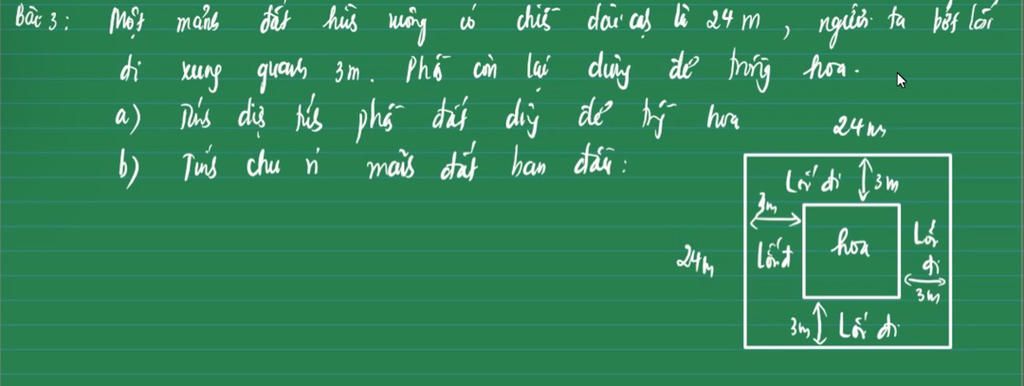 Bài 3: Một mảnh đất hình vuông có chiều dài cạnh là 24 m, người ta bớt lối
đi xung quanh 3m. Phần còn lại dùng để trồng hoa.
a) Tính diện tích phần đất dùng để trồng hoa
b) Tính chu vi mảnh đất ban đầu:
24m
Lối đi 3m
3m
hoa
Lối đi
24m
Lối đi
3m
3m Lối đi